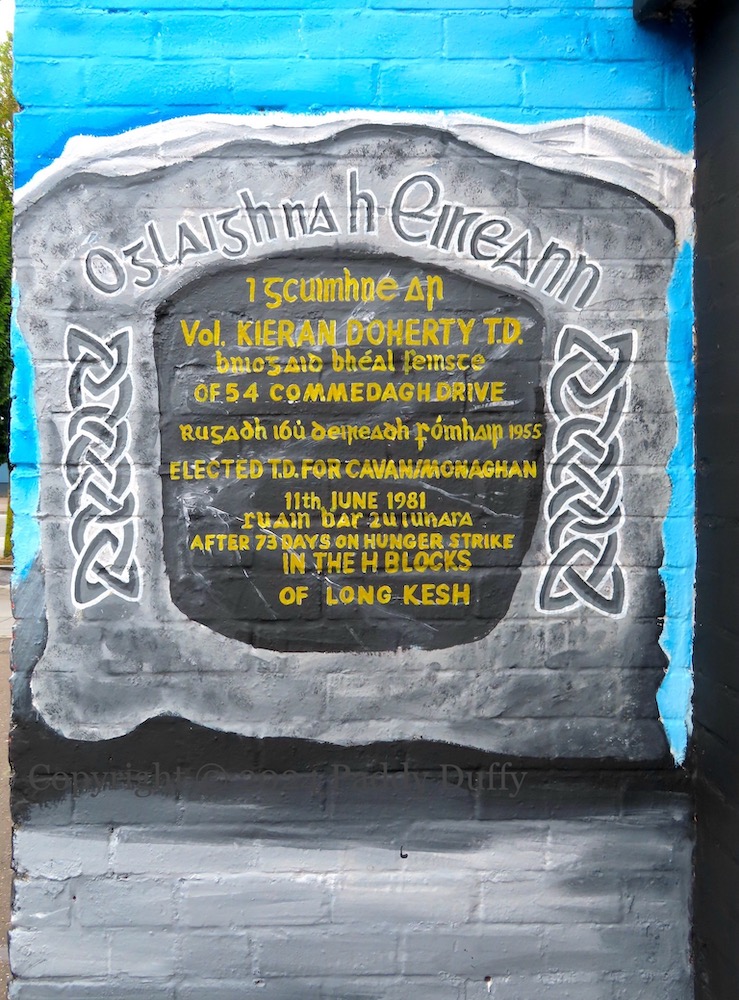 Oglaigh na h-Eireann
I gcuimhne ar
Vol. KIERAN DOHERTY T.D.
bhéal feirste
OF 54 COMMEDAGH DRIVE
Rugadh 16ú deireadh fómhair 1955
ELECTED T.D. FOR CAVAN/MONAGHAN
11th JUNE 1981
AFTER 73 DAYS ON HUNGER STRIKE
IN THE H BLOCKS
OF LONG KESH
Copyright © Paddy Duffy